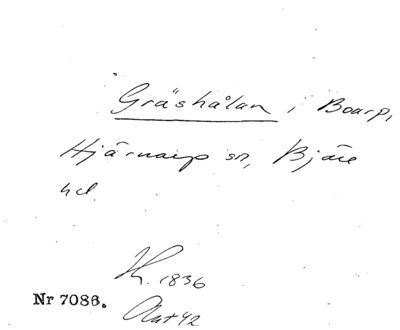 Gräshålan i Boarp,
Hjärnarp sn, Bjäre
hd.
K. 1836
Nr 7086.
Akt 42